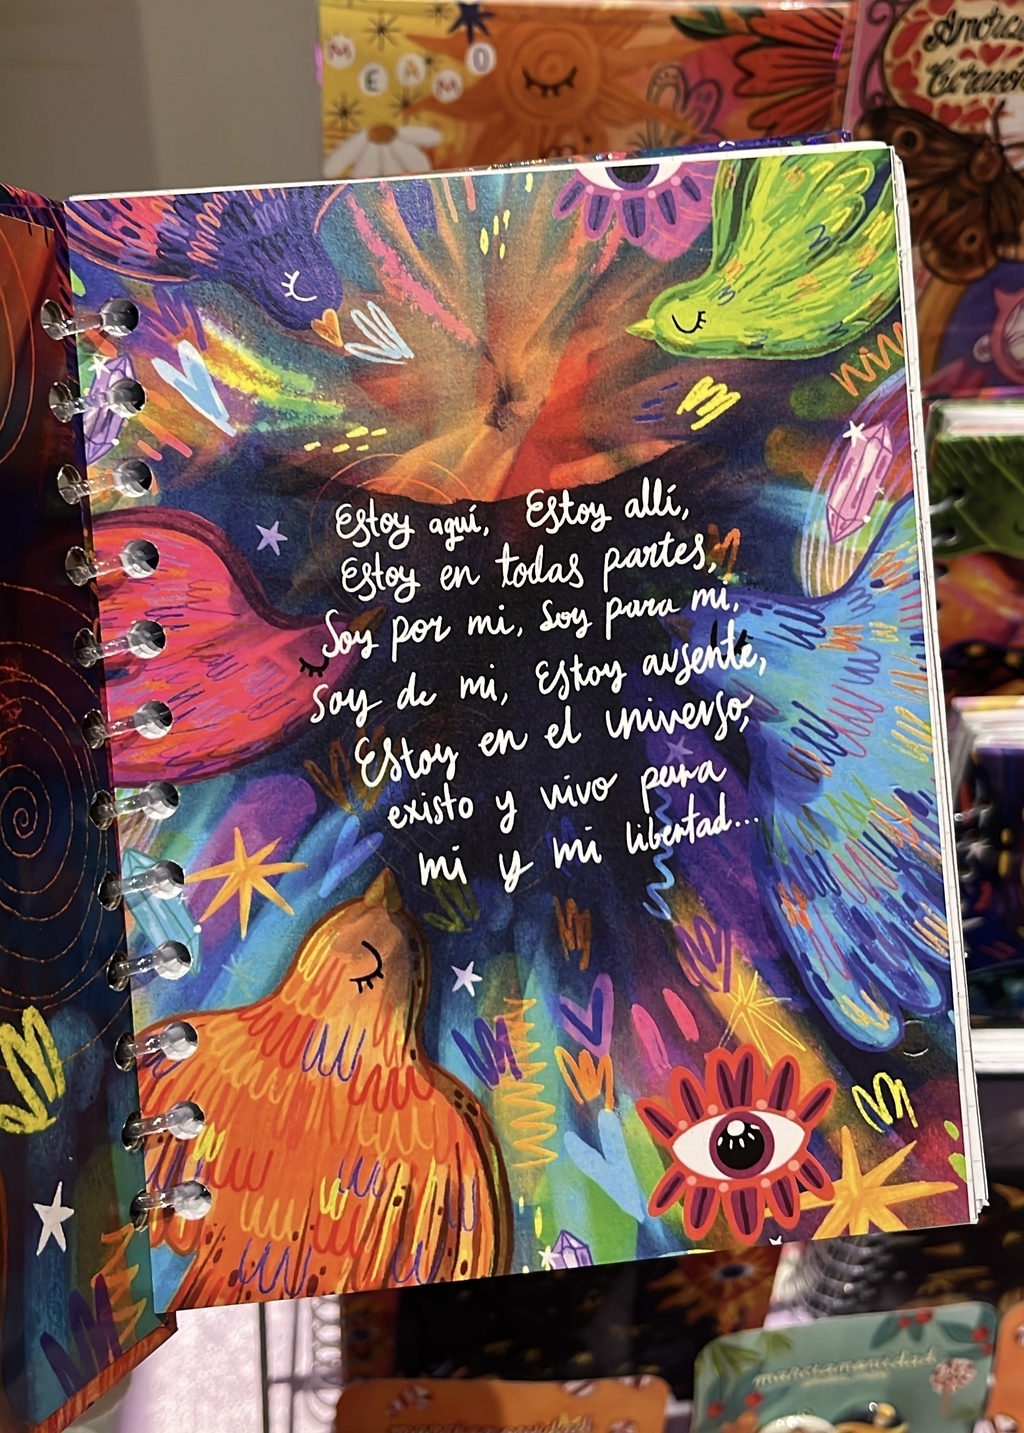 MEAMO
Amor
Corazón
Estoy aquí, Estoy allí,
Estoy en todas partes,
Soy por mi, Soy para mi,
Soy de mi, Estoy ausente,
Estoy en el universo,
existo y vivo para
mi y mi libertad...